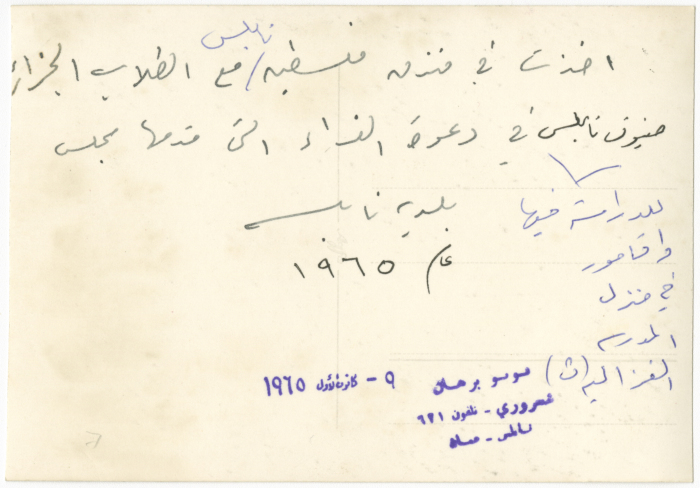 نابلس
اخذت في فندق فلسطين / مع الطلاب الجزائر
ضيوف نابلس في دعوة الغداء التي قدمها مجلس
بلدية نابلس
عام ١٩٦٥
للدراسة فيها
واقامو
في منزل
المدرسة
الغزالية (ث)
٩ - كانون الأول ١٩٦٥
برهان
تلفون ٦٢١
نابلس - عمان